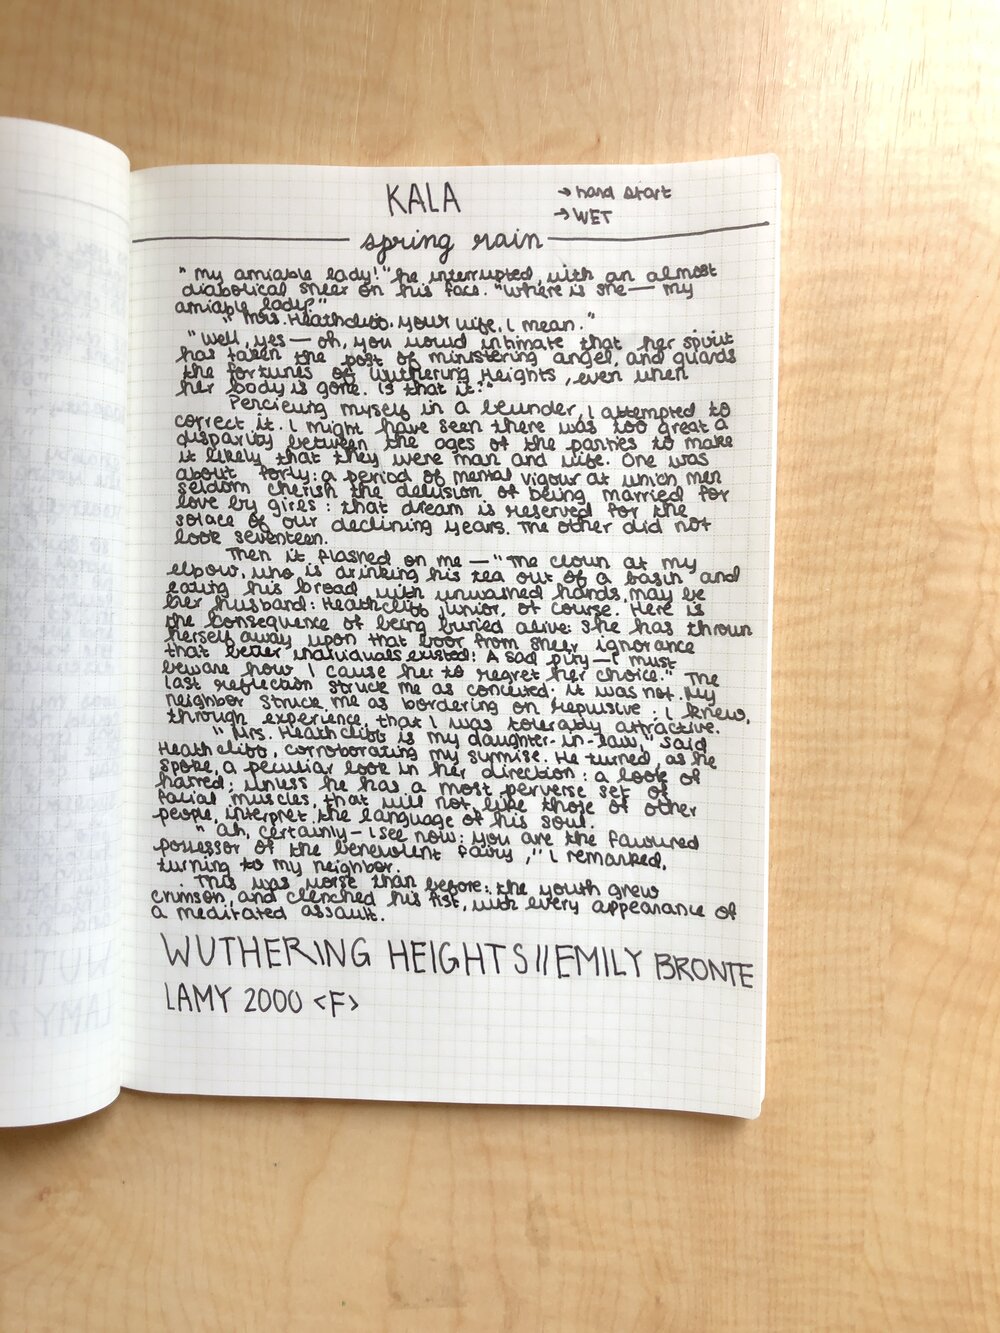 KALA
→ hard start
→ WET
spring rain
"My amiable lady!" he interrupted, with an almost
diabolical sneer on his face. "Where is she — my
amiable lady?"
"Mrs. Heathcliff. Your wife, I mean."
"Well, yes — oh, you would intimate that her spirit
has taken the post of ministering angel, and guards
the fortunes of Wuthering Heights, even when
her body is gone. Is that it?"
Percieving myself in a blunder, I attempted to
correct it. I might have seen there was too great a
disparity between the ages of the parties to make
it likely that they were man and wife. One was
about forty: a period of mental vigour at which men
seldom cherish the delusion of being married for
love by girls: that dream is reserved for the
solace of our declining years. The other did not
look seventeen.
Then it flashed on me — "The clown at my
elbow, who is drinking his tea out of a basin and
eating his bread with unwashed hands, may be
her husband: Heathcliff junior, of course. Here is
the consequence of being buried alive: she has thrown
herself away upon that boor from sheer ignorance
that better individuals existed! A sad pity — I must
beware how I cause her to regret her choice." The
last reflection struck me as conceited; it was not. My
neighbor struck me as bordering on repulsive; I knew,
through experience, that I was tolerably attractive.
"Mrs. Heathcliff is my daughter-in-law," said
Heathcliff, corroborating my surmise. He turned, as he
spoke, a peculiar look in her direction: a look of
hatred; unless he has a most perverse set of
facial muscles, that will not, like those of other
people, interpret the language of his soul.
"Ah, certainly – I see now: you are the favoured
possessor of the benevolent fairy," I remarked,
turning to my neighbor.
This was worse than before: the youth grew
crimson, and clenched his fist, with every appearance of
a meditated assault.
WUTHERING HEIGHTS // EMILY BRONTE
LAMY 2000 <F>